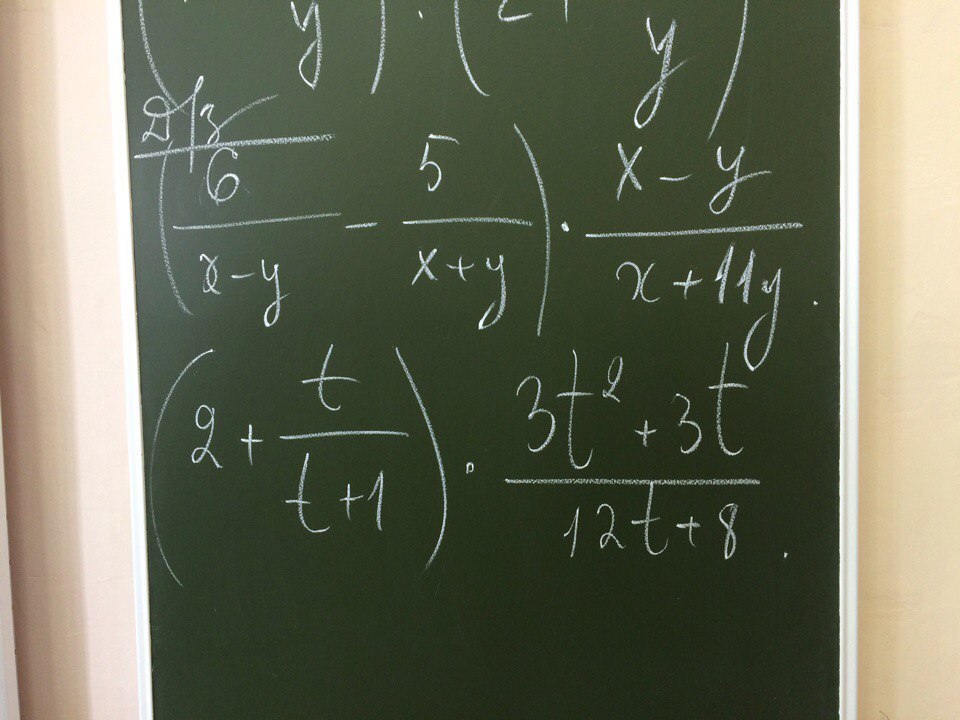 y) · (2+ y)
Д/з
(6/(x-y) - 5/(x+y)) · (x-y)/(x+11y).
(2 + t/(t+1)) · (3t²+3t)/(12t+8).